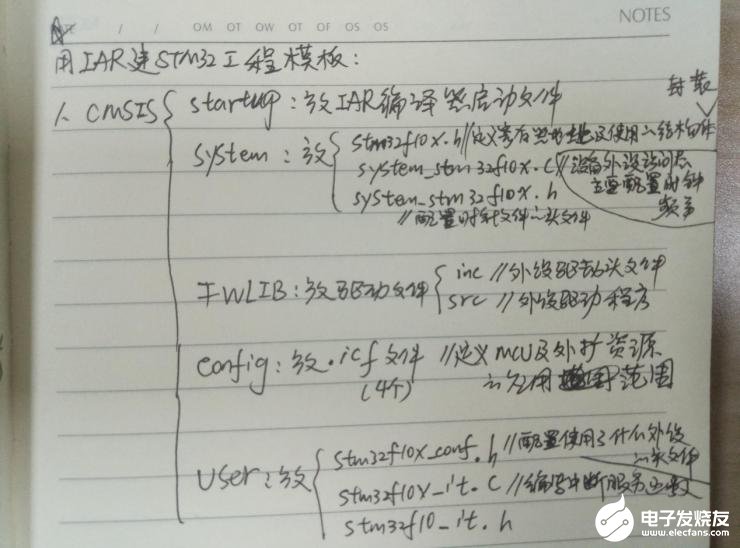 NOTES
DATE / / OM OT OW OT OF OS OS
用IAR建STM32工程模板:
1、CMSIS
startup:放IAR编译器启动文件
封装
system:放
stm32f10x.h//定义寄存器地址及使用的结构体
system_stm32f10x.c//设备外设访问层
主要配置时钟
频率
system_stm32f10x.h
//配置时钟文件的头文件
FWLIB:放驱动文件
inc //外设驱动头文件
src //外设驱动程序
config:放.icf文件 //定义MCU及外扩资源
(4个)
的 范围
user:放
stm32f10x_conf.h //配置使用了什么外设
的头文件
stm32f10x_it.c //编写中断服务函数
stm32f10_it.h
电子发烧友
www.elecfans.com